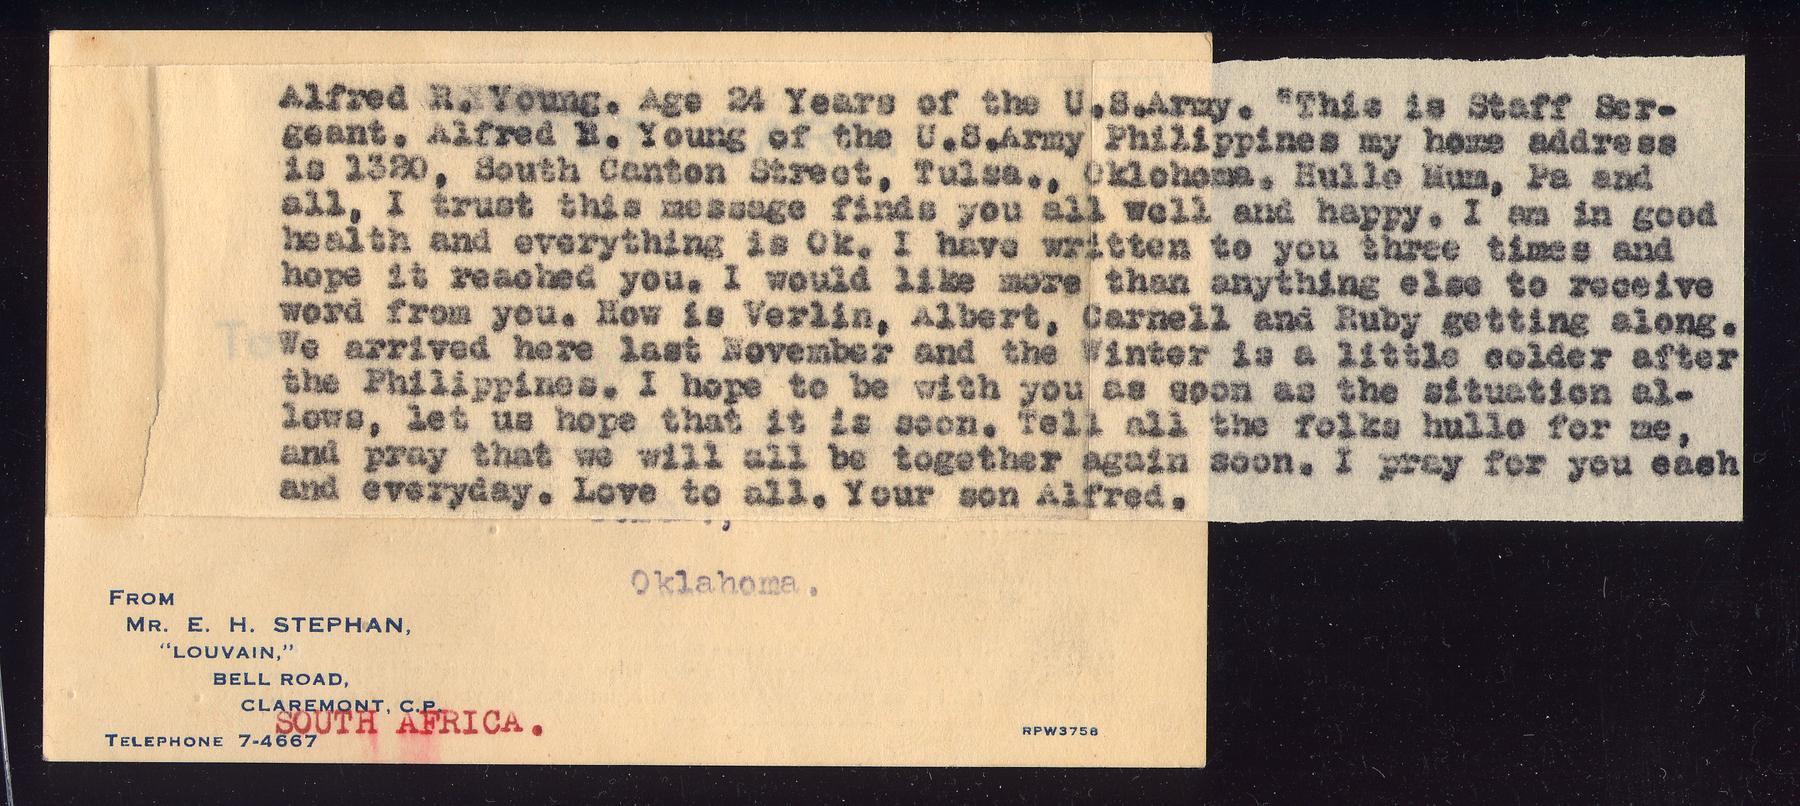 Alfred R. Young. Age 24 Years of the U.S.Army. "This is Staff Ser-
geant. Alfred R. Young of the U.S.Army Philippines my home address
is 1320, South Canton Street, Tulsa., Oklohoma. Hullo Mum, Pa and
all, I trust this message finds you all well and happy. I am in good
health and everything is Ok. I have written to you three times and
hope it reached you. I would like more than anything else to receive
word from you. How is Verlin, Albert, Carnell and Ruby getting along.
We arrived here last November and the Winter is a little colder after
the Philippines. I hope to be with you as soon as the situation al-
lows, let us hope that it is soon. Tell all the folks hullo for me,
and pray that we will all be together again soon. I pray for you each
and everyday. Love to all. Your son Alfred.
Oklahoma.
FROM
MR. E. H. STEPHAN,
"LOUVAIN,"
BELL ROAD,
CLAREMONT, C.P.
SOUTH AFRICA.
TELEPHONE 7-4667
RPW3758